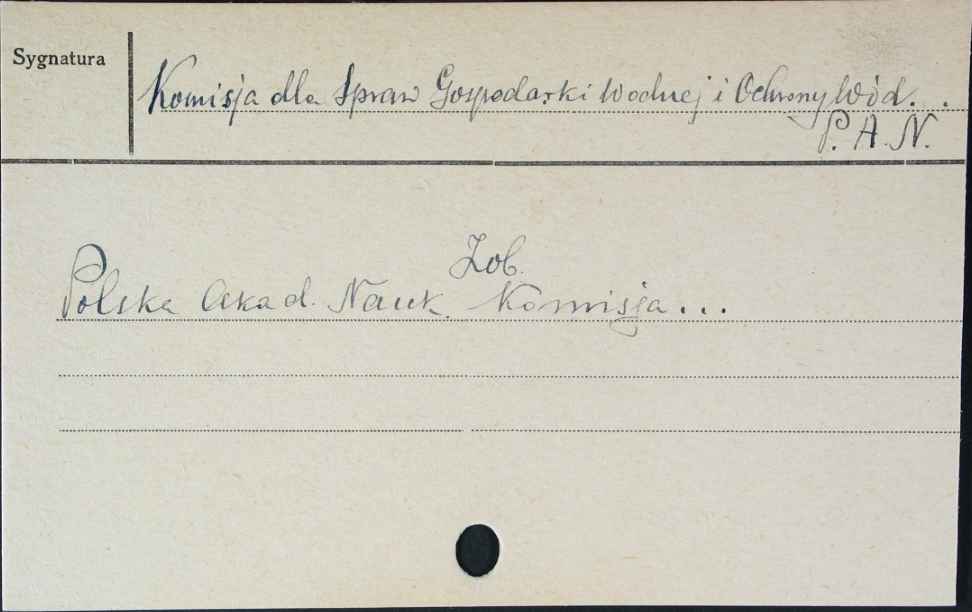 Sygnatura
Komisja dla Spraw Gospodarki Wodnej i Ochrony Wód.
P. A. N.
Zob.
Polska Akad. Nauk. Komisja...